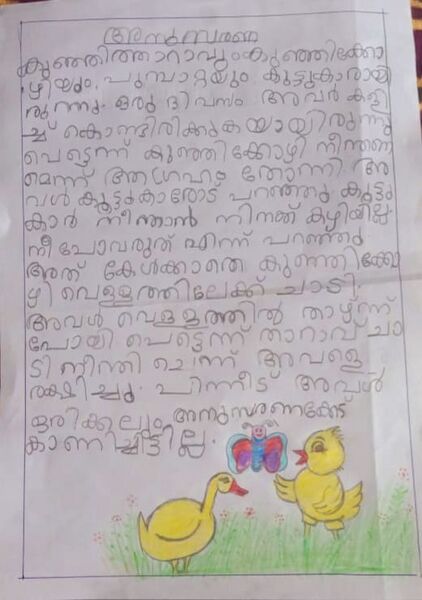 അനുസരണ
കുഞ്ഞിത്താറാവും കുഞ്ഞിക്കോ
ഴിയും, പുമ്പാറ്റയും കൂട്ടുകാരായി
രുന്നു. ഒരു ദിവസം അവർ കളി
ച്ച് കൊണ്ടിരിക്കുകയായിരുന്നു
പെട്ടെന്ന് കുഞ്ഞിക്കോഴി നീന്തണ
മെന്ന് ആഗ്രഹം തോന്നി. അ
വൾ കൂട്ടുകാരോട് പറഞ്ഞു കൂട്ടു
കാർ നീന്താൻ നിനക്ക് കഴിയില്ല.
നീ പോവരുത് എന്ന് പറഞ്ഞു
അത് കേൾക്കാതെ കുഞ്ഞിക്കോ
ഴി വെള്ളത്തിലേക്ക് ചാടി.
അവൾ വെള്ളത്തിൽ താഴ്ന്ന്
പോയി പെട്ടെന്ന് താറാവ് ചാ
ടി നീന്തി ചെന്ന് അവളെ
രക്ഷിച്ചു. പിന്നീട് അവൾ
ഒരിക്കലും അനുസരണക്കേട്
കാണിച്ചിട്ടില്ല.